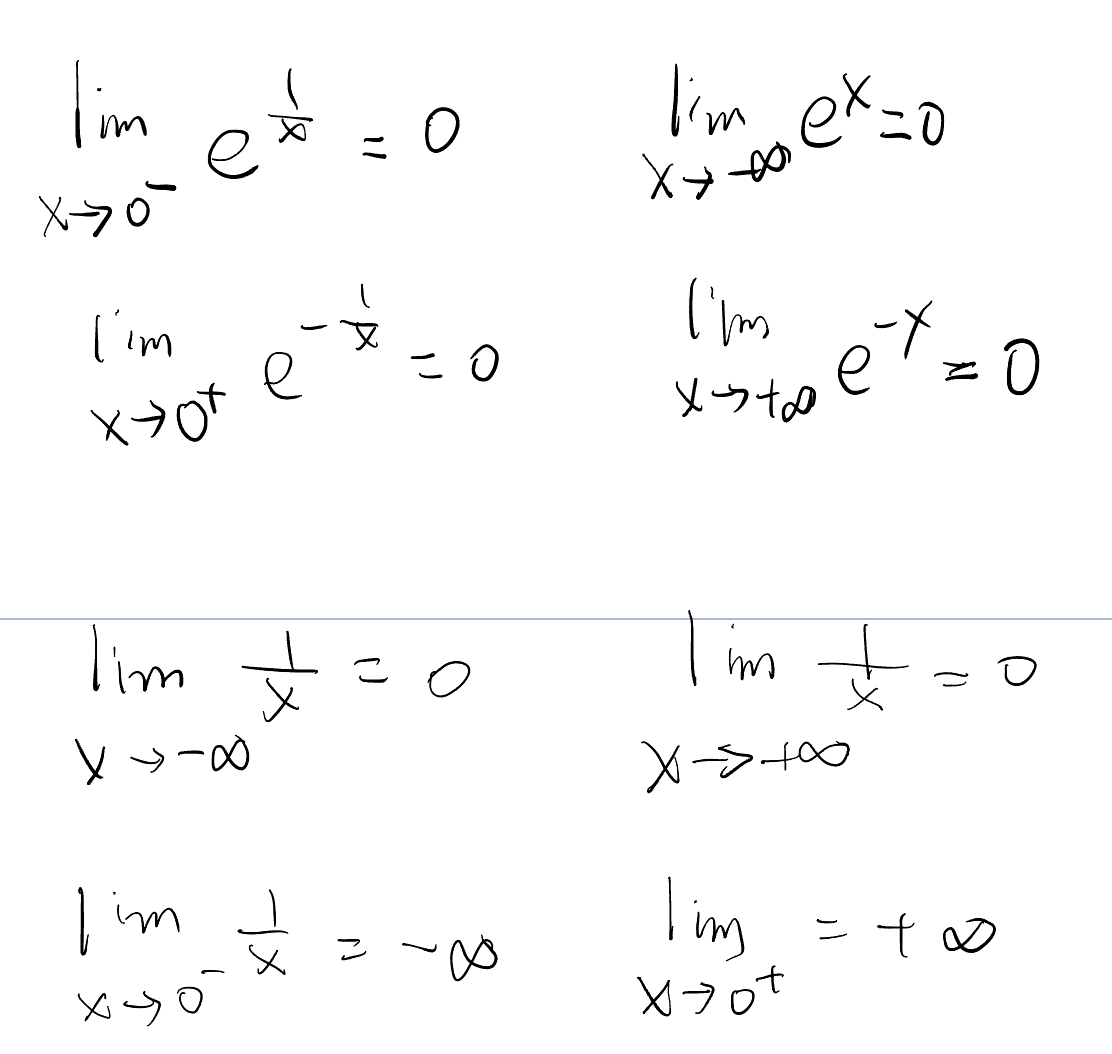 lim_{x→0^-} e^{1/x} = 0    lim_{x→-∞} e^x = 0
lim_{x→0^+} e^{-1/x} = 0    lim_{x→+∞} e^{-x} = 0
lim_{x→-∞} 1/x = 0    lim_{x→+∞} 1/x = 0
lim_{x→0^-} 1/x = -∞    lim_{x→0^+} = +∞